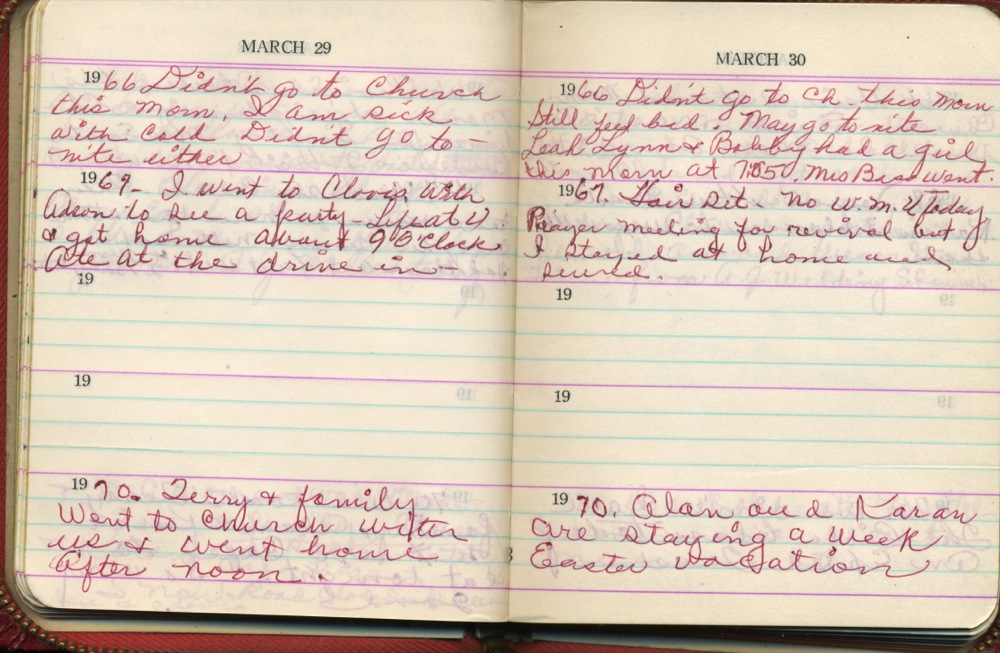 MARCH 29
1966 Didn't go to Church
this morn, I am sick
with cold Didn't go to-
nite either
1969- I went to Clovis with
to see a party-
& got home about 9 O'Clock
Ate at the drive in-
19
19
1970. Terry & family
Went to Church with
us & went home
after noon.
MARCH 30
1966 Didn't go to Ch. this morn
Still feel bad. May go to nite
Leah Lynn & Bobby had a girl
this morn at 7: went.
1967. Hair set- No W.M.U today
Prayer meeting for revival but
I stayed at home and
19
19
1970. Alan and Karan
are staying a week
Easter vacation